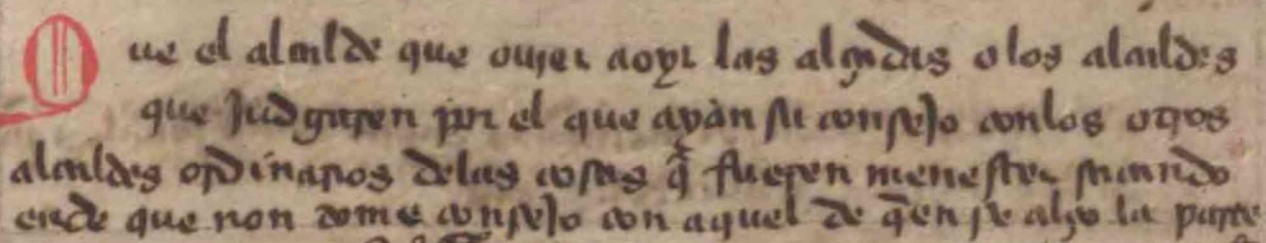 Que el alcalde que ouier a oyr las alçadas o los alcaldes
que judgaren por el que ayan su consejo con los otros
alcaldes ordinarios delas cosas q̃ fueren menester sacando
ende que non tome consejo con aquel de q̃en se alço la parte